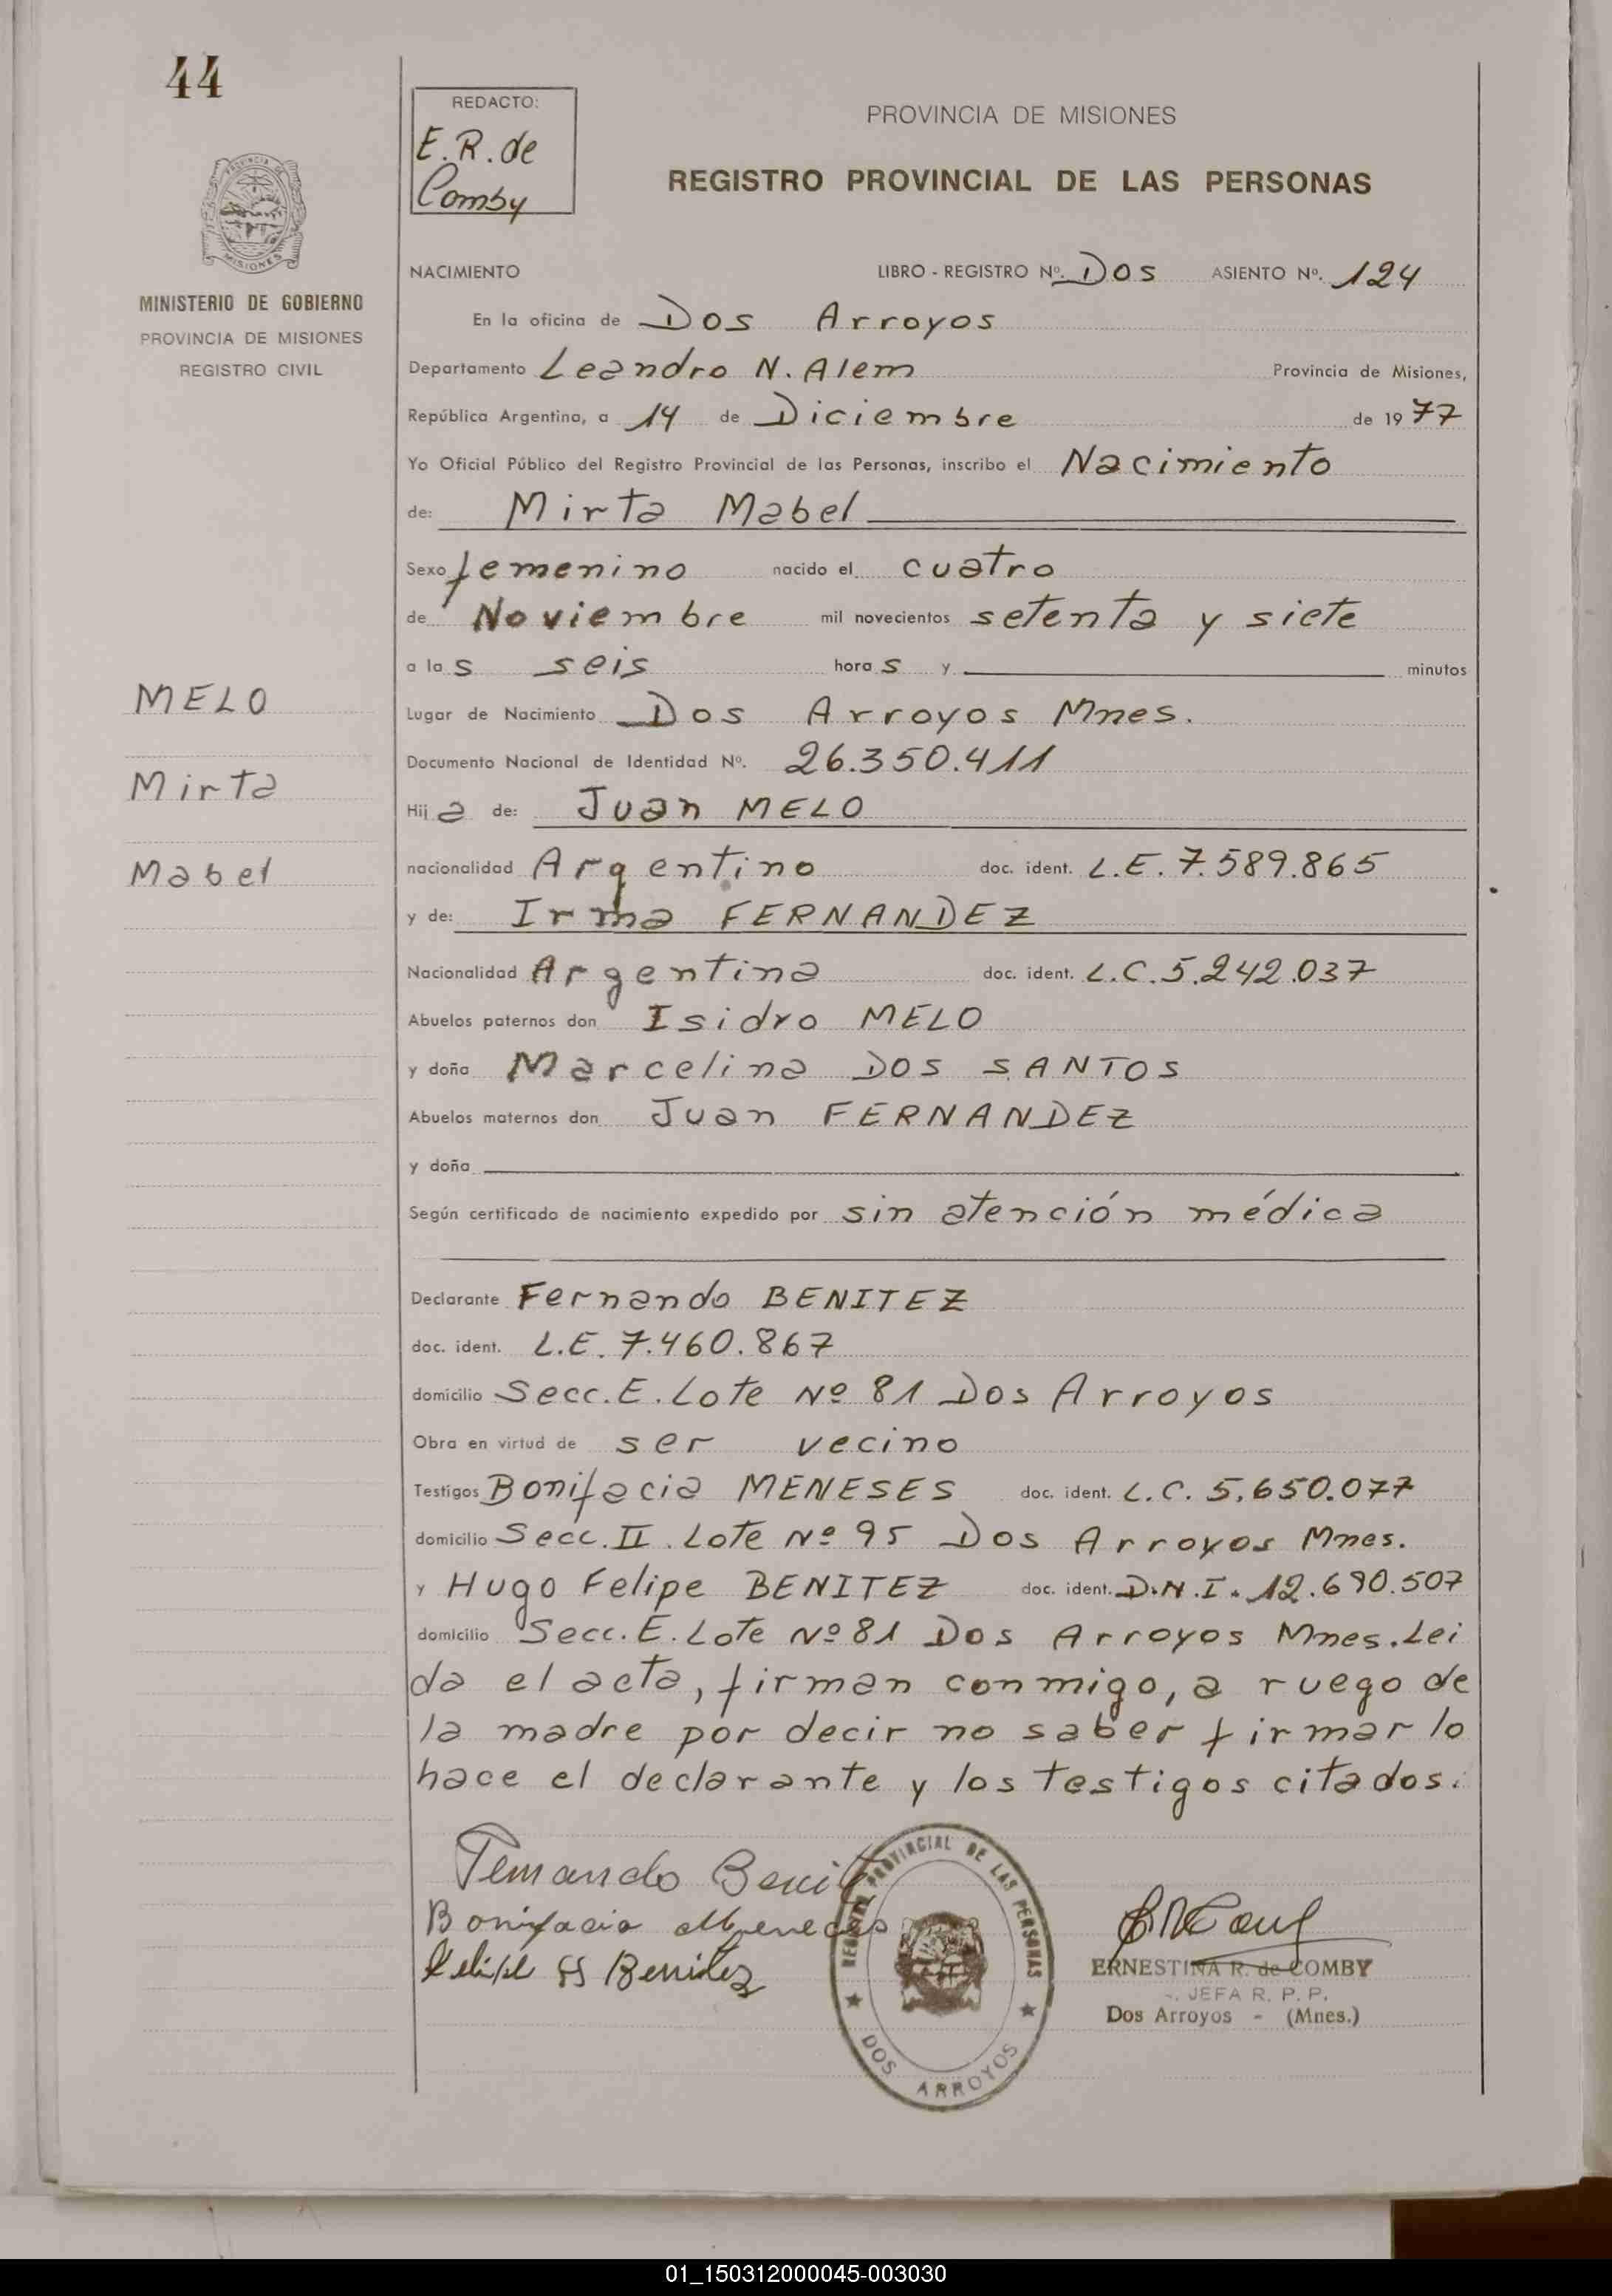 44
REDACTO:
E.R. de
Comby
PROVINCIA DE MISIONES
REGISTRO PROVINCIAL DE LAS PERSONAS
PROVINCIA DE
MISIONES
MINISTERIO DE GOBIERNO
PROVINCIA DE MISIONES
REGISTRO CIVIL
NACIMIENTO LIBRO - REGISTRO Nº. Dos ASIENTO Nº. 124
En la oficina de Dos Arroyos
Departamento Leandro N. Alem Provincia de Misiones,
República Argentina, a 14 de Diciembre de 1977
Yo Oficial Público del Registro Provincial de las Personas, inscribo el Nacimiento
de: Mirta Mabel
Sexo femenino nacido el cuatro
de Noviembre mil novecientos setenta y siete
a las seis horas y minutos
MELO
Mirta
Mabel
Lugar de Nacimiento Dos Arroyos Mnes.
Documento Nacional de Identidad Nº. 26.350.411
Hija de: Juan MELO
nacionalidad Argentino doc. ident. L.E. 7.589.865
y de: Irma FERNANDEZ
Nacionalidad Argentina doc. ident. L.C. 5.242.037
Abuelos paternos don Isidro MELO
y doña Marcelina DOS SANTOS
Abuelos maternos don Juan FERNANDEZ
y doña
Según certificado de nacimiento expedido por sin atención médica
Declarante Fernando BENITEZ
doc. ident. L.E. 7.460.867
domicilio Secc. E. Lote Nº 81 Dos Arroyos
Obra en virtud de ser vecino
Testigos Bonifacia MENESES doc. ident. L.C. 5.650.077
domicilio Secc. II. Lote Nº 95 Dos Arroyos Mnes.
y Hugo Felipe BENITEZ doc. ident. D.N.I. 12.690.507
domicilio Secc. E. Lote Nº 81 Dos Arroyos Mnes. Lei
da el acta, firman conmigo, a ruego de
la madre por decir no saber firmar lo
hace el declarante y los testigos citados.
Fernando Benit
Bonifacia Meneces
Felipe H Benitez
REGISTRO PROVINCIAL DE LAS PERSONAS
DOS ARROYOS
ERNESTINA R. de COMBY
JEFA R. P. P.
Dos Arroyos - (Mnes.)
01_150312000045-003030